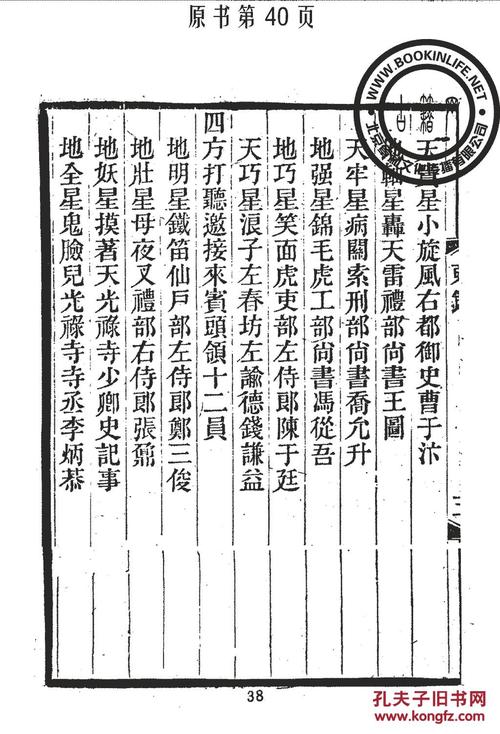 原书第40页
WWW.BOOKINLIFE.NET
星小旋風右都御史曹于汴
星轟天雷禮部尚書王圖
天牢星病關索刑部尚書喬允升
地强星錦毛虎工部尚書馮從吾
地巧星笑面虎吏部左侍郎陳于廷
天巧星浪子左春坊左諭德錢謙益
四方打聽邀接來賓頭領十二員
地明星鐵笛仙戸部左侍郎鄭三俊
地壯星母夜叉禮部右侍郎張鼐
地妖星摸著天光祿寺少卿史記事
地全星鬼臉兒光祿寺寺丞李炳恭
38
孔夫子旧书网
www.kongfz.com